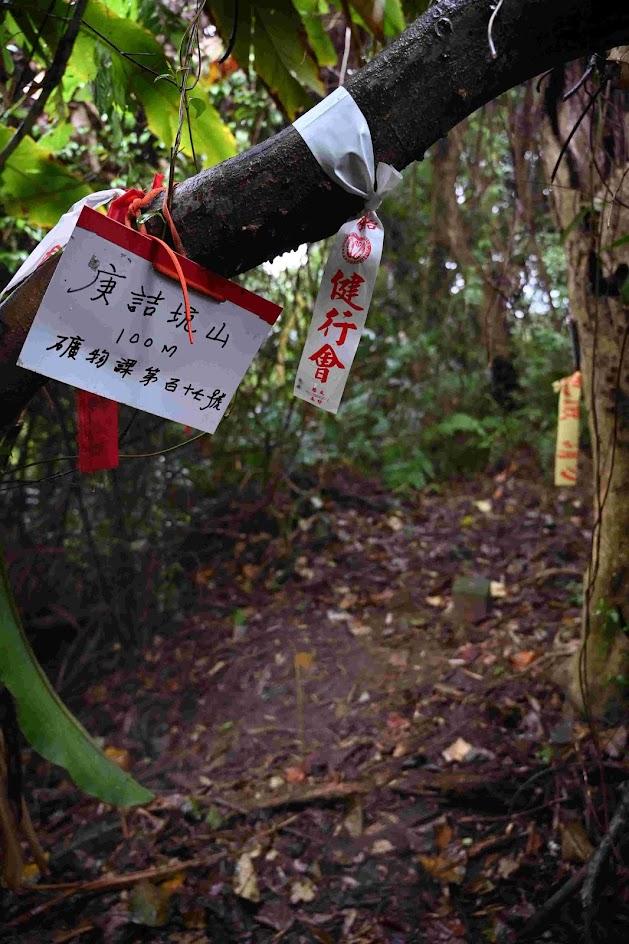 庚詰坑山
100M
礦物課第百十七號
健行會